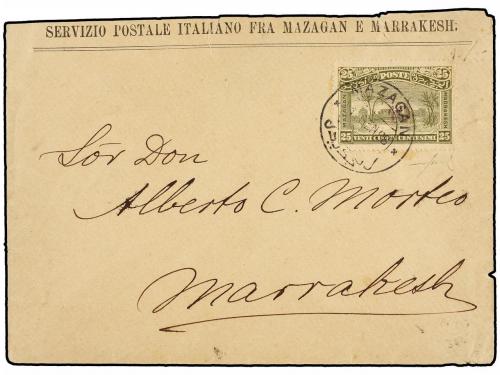 SERVIZIO POSTALE ITALIANO FRA MAZAGAN E MARRAKESH.
25 POSTE 25
MAZAGAN MARRAKESH
25 VENTI CINQUE CENTESIMI 25
MAZAGAN
Sór Don
Alberto C. Morteo
Marrakesh